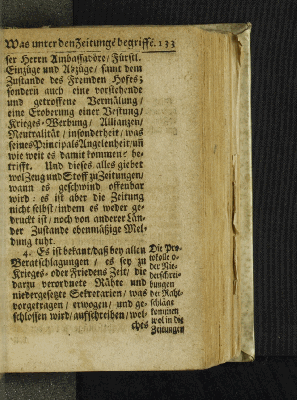 Was unter den Zeitungẽ begriffẽ. 133
ser Herrn Ambassadore / Fürstl.
Einzüge und Abzüge / samt dem
Zustande des Fremden Hofes;
sondern auch eine vorstehende
und getroffene Vermälung /
eine Eroberung einer Vestung /
Krieges-Werbung / Allianzen /
Neutralität / insonderheit / was
seines Principals Angelenheit / uñ
wie weit es damit kommen / be-
trifft. Und dieses alles giebet
wol Zeug und Stoff zu Zeitungen /
wann es geschwind offenbar
wird: es ist aber die Zeitung
nicht selbst / indem es weder ge-
druckt ist / noch von anderer Län-
der Zustande ebenmäßige Mel-
dung tuht.
4. Es ist bekant / daß bey allen
Beratschlagungen / es sey zu
Krieges- oder Friedens Zeit / die
darzu verordnete Rähte und
niedergesezte Sekretarien / was
vorgetragen / erwogen / und ge-
schlossen wird / aufschreiben / wel-
ches
Die Pro-
tokolle o-
der Nie-
derschrei-
bungen
der Raht-
schläge
kommen
wol in die
Zeitungen